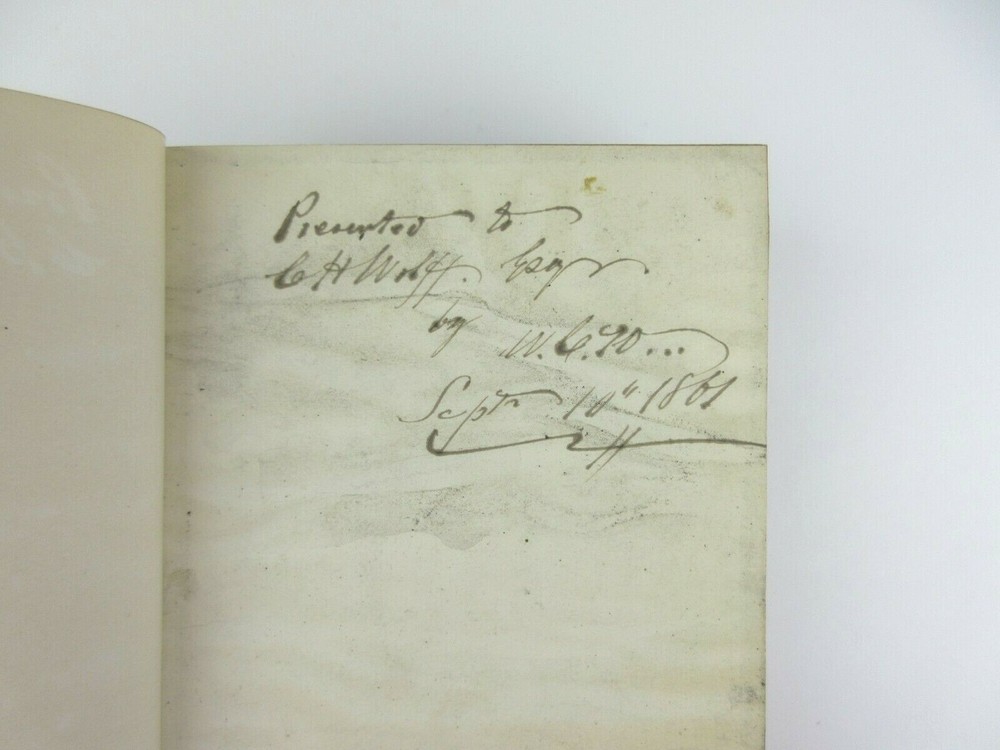 Presented to
C H Wolff. Esqr
by
W. C. W...
Septr 10" 1861